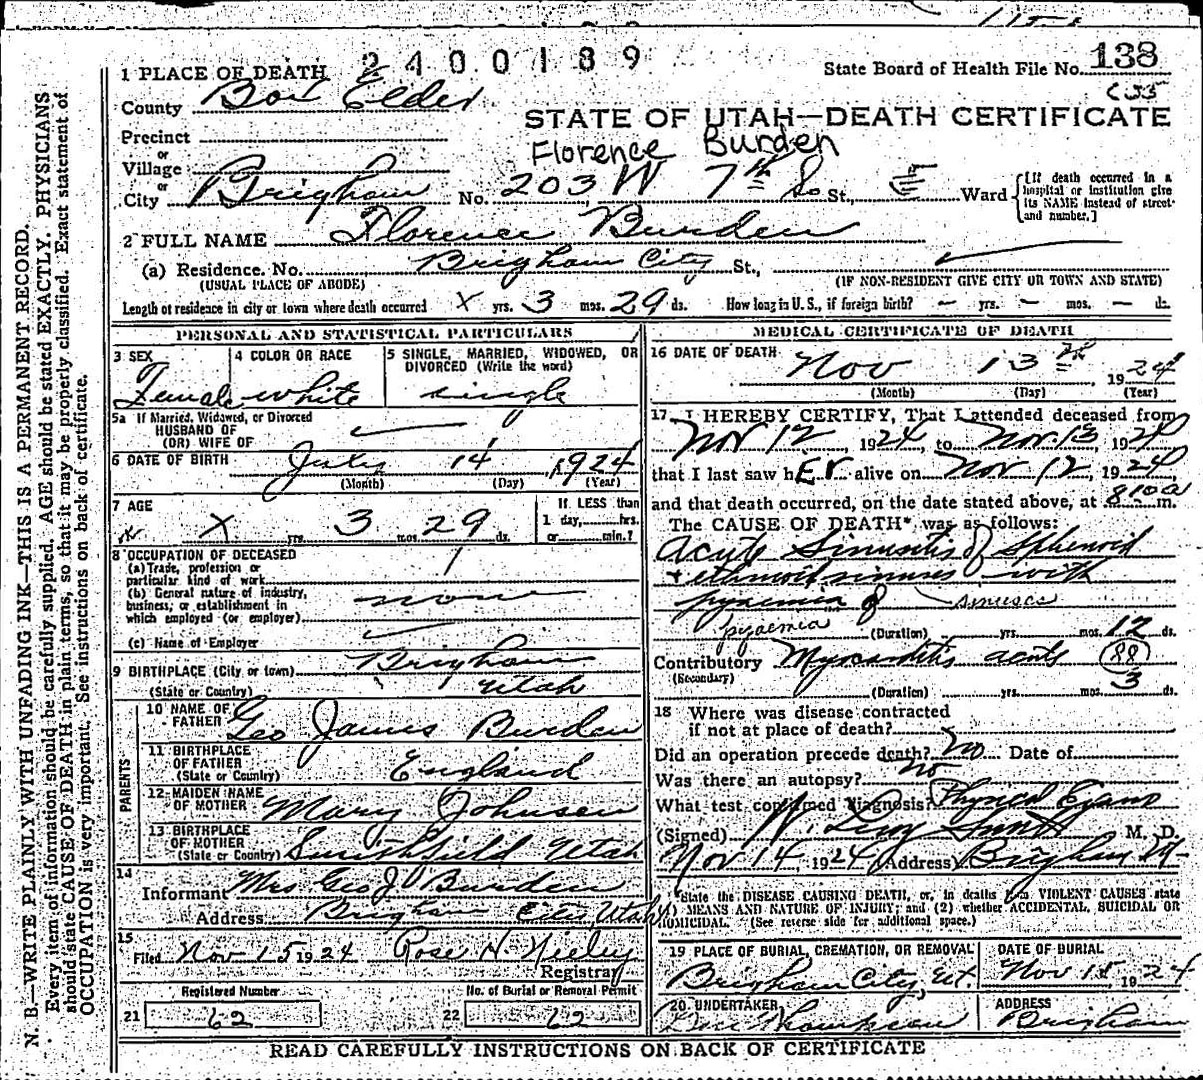 2400189
State Board of Health File No. 138
1 PLACE OF DEATH
County Box Elder
STATE OF UTAH—DEATH CERTIFICATE
Precinct
or
Village
Florence Burden
or
City Brigham No. 203 W 7th So St., Ward
[If death occurred in a hospital or institution give its NAME instead of street and number.]
2 FULL NAME Florence Burden
(a) Residence. No. Brigham City St.,
(USUAL PLACE OF ABODE) (IF NON-RESIDENT GIVE CITY OR TOWN AND STATE)
Length of residence in city or town where death occurred X yrs. 3 mos. 29 ds. How long in U.S., if foreign birth? – yrs. – mos. – ds.
PERSONAL AND STATISTICAL PARTICULARS
3 SEX 4 COLOR OR RACE 5 SINGLE, MARRIED, WIDOWED, OR DIVORCED (Write the word)
Female white single
5a If Married, Widowed, or Divorced
HUSBAND OF
(OR) WIFE OF
6 DATE OF BIRTH July 14 1924
(Month) (Day) (Year)
7 AGE If LESS than
X yrs. 3 mos. 29 ds. 1 day,....hrs. or....min.?
8 OCCUPATION OF DECEASED
(a) Trade, profession or
particular kind of work
(b) General nature of industry,
business, or establishment in
which employed (or employer)
(c) Name of Employer
9 BIRTHPLACE (City or town) Brigham
(State or Country) Utah
PARENTS
10 NAME OF FATHER Geo James Burden
11 BIRTHPLACE OF FATHER (State or Country) England
12 MAIDEN NAME OF MOTHER Mary Johnson
13 BIRTHPLACE OF MOTHER (State or Country) Smithfield Utah
14
Informant Mrs Geo J Burden
Address Brigham City Utah
15
Filed Nov 15 1924 Rose H. Neeley
Registrar
Registered Number No. of Burial or Removal Permit
21 62 22 62
MEDICAL CERTIFICATE OF DEATH
16 DATE OF DEATH Nov 13th 1924
(Month) (Day) (Year)
17 I HEREBY CERTIFY, That I attended deceased from
Nov 12, 1924, to Nov. 13, 1924
that I last saw hEr alive on Nov 12, 1924
and that death occurred, on the date stated above, at 810a m.
The CAUSE OF DEATH* was as follows:
Acute Sinusitis of Sphenoid
+ ethmoid sinuses with
pyaemia of sinuses
pyaemia (Duration) yrs. mos. 12 ds.
Contributory Myocarditis acute 88
(Secondary) (Duration) yrs. mos. 3 ds.
18 Where was disease contracted
if not at place of death?
Did an operation precede death? No Date of
Was there an autopsy? No
What test confirmed diagnosis? Physical Exam
(Signed) W. Smith M. D.
Nov 14, 1924 (Address) Brigham
*State the DISEASE CAUSING DEATH, or, in deaths from VIOLENT CAUSES state
(1) MEANS AND NATURE OF INJURY; and (2) whether ACCIDENTAL, SUICIDAL OR
HOMICIDAL. (See reverse side for additional space.)
19 PLACE OF BURIAL, CREMATION, OR REMOVAL DATE OF BURIAL
Brigham City, Ut. Nov 15, 1924
20 UNDERTAKER ADDRESS
Thompson Brigham
READ CAREFULLY INSTRUCTIONS ON BACK OF CERTIFICATE
N. B.—WRITE PLAINLY WITH UNFADING INK—THIS IS A PERMANENT RECORD.
Every item of information should be carefully supplied. AGE should be stated EXACTLY. PHYSICIANS
should state CAUSE OF DEATH in plain terms, so that it may be properly classified. Exact statement of
OCCUPATION is very important. See instructions on back of certificate.